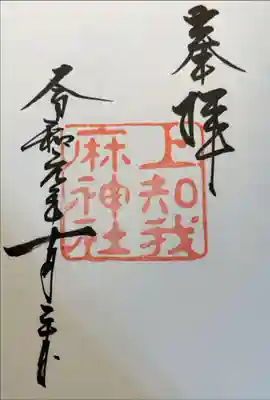 奉拝
上知我
麻神社
令和元年十月三日